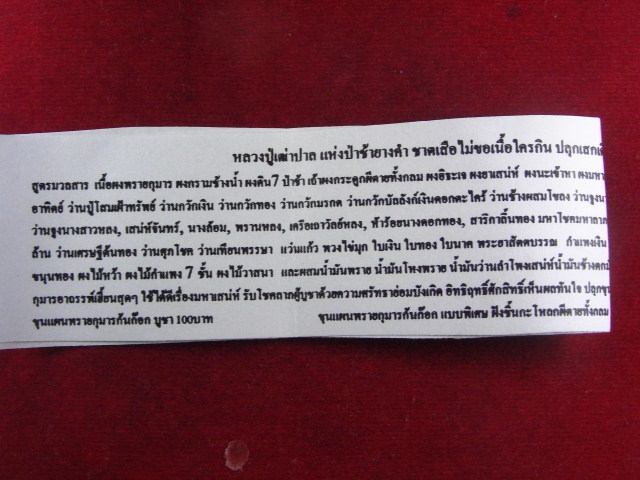 หลวงปู่เฒ่าปาล แห่งป่าช้ายางคำ ชาตเสือไม่ขอเนื้อใครกิน ปลุกเสก
สูตรมวลสาร เนื้อผงพรายกุมาร ผงกรามช้างน้ำ ผงดิน 7 ป่าช้า เถ้าผงกระดูกผีตายทั้งกลม ผงอิธะเจ ผงยาเสน่ห์ ผงนะเข้าหา ผงมหา
อาทิตย์ ว่านปู่โสมเฝ้าทรัพย์ ว่านกวักเงิน ว่านกวักทอง ว่านกวักมรกต ว่านกวักบัลลังก์เงินดอกตะไคร้ ว่านช้างผสมโขลง
ว่านจูงนางสาวหลง, เสน่ห์จันทร์, นางล้อม, พรานหลง, เครือเถาวัลย์หลง, ห้าร้อยนางดอกทอง, สาริกาลิ้นทอง มหาโชคมหาลาภ
ล้าน ว่านเศรษฐีต้นทอง ว่านศุภโชค ว่านเพื่อนพรรษา แว่นแก้ว พวงไข่มุก ใบเงิน ใบทอง ใบนาค พระยาสัตตบรรณ กำแพงเงิน
ขนุนทอง ผงไม้หว้า ผงไม้กำแพง 7 ชั้น ผงไม้วาสนา และผสมน้ำมันพราย น้ำมันโหงพราย น้ำมันว่านลำโพงเสน่ห์น้ำมันช้างตกมัน
กุมารอาถรรพ์เฮี้ยนสุดๆ ใช้ได้ดีเรื่องมหาเสน่ห์ รับโชคลาภผู้บูชาด้วยความศรัทธาย่อมบังเกิด อิทธิฤทธิ์ศักสิทธิ์เห็นผลทันใจ
ขุนแผนพรายกุมารก้นก๊อก บูชา 100บาท ขุนแผนพรายกุมารก้นก๊อก แบบพิเศษ ฝังชิ้นกะโหลกผีตายทั้งกลม